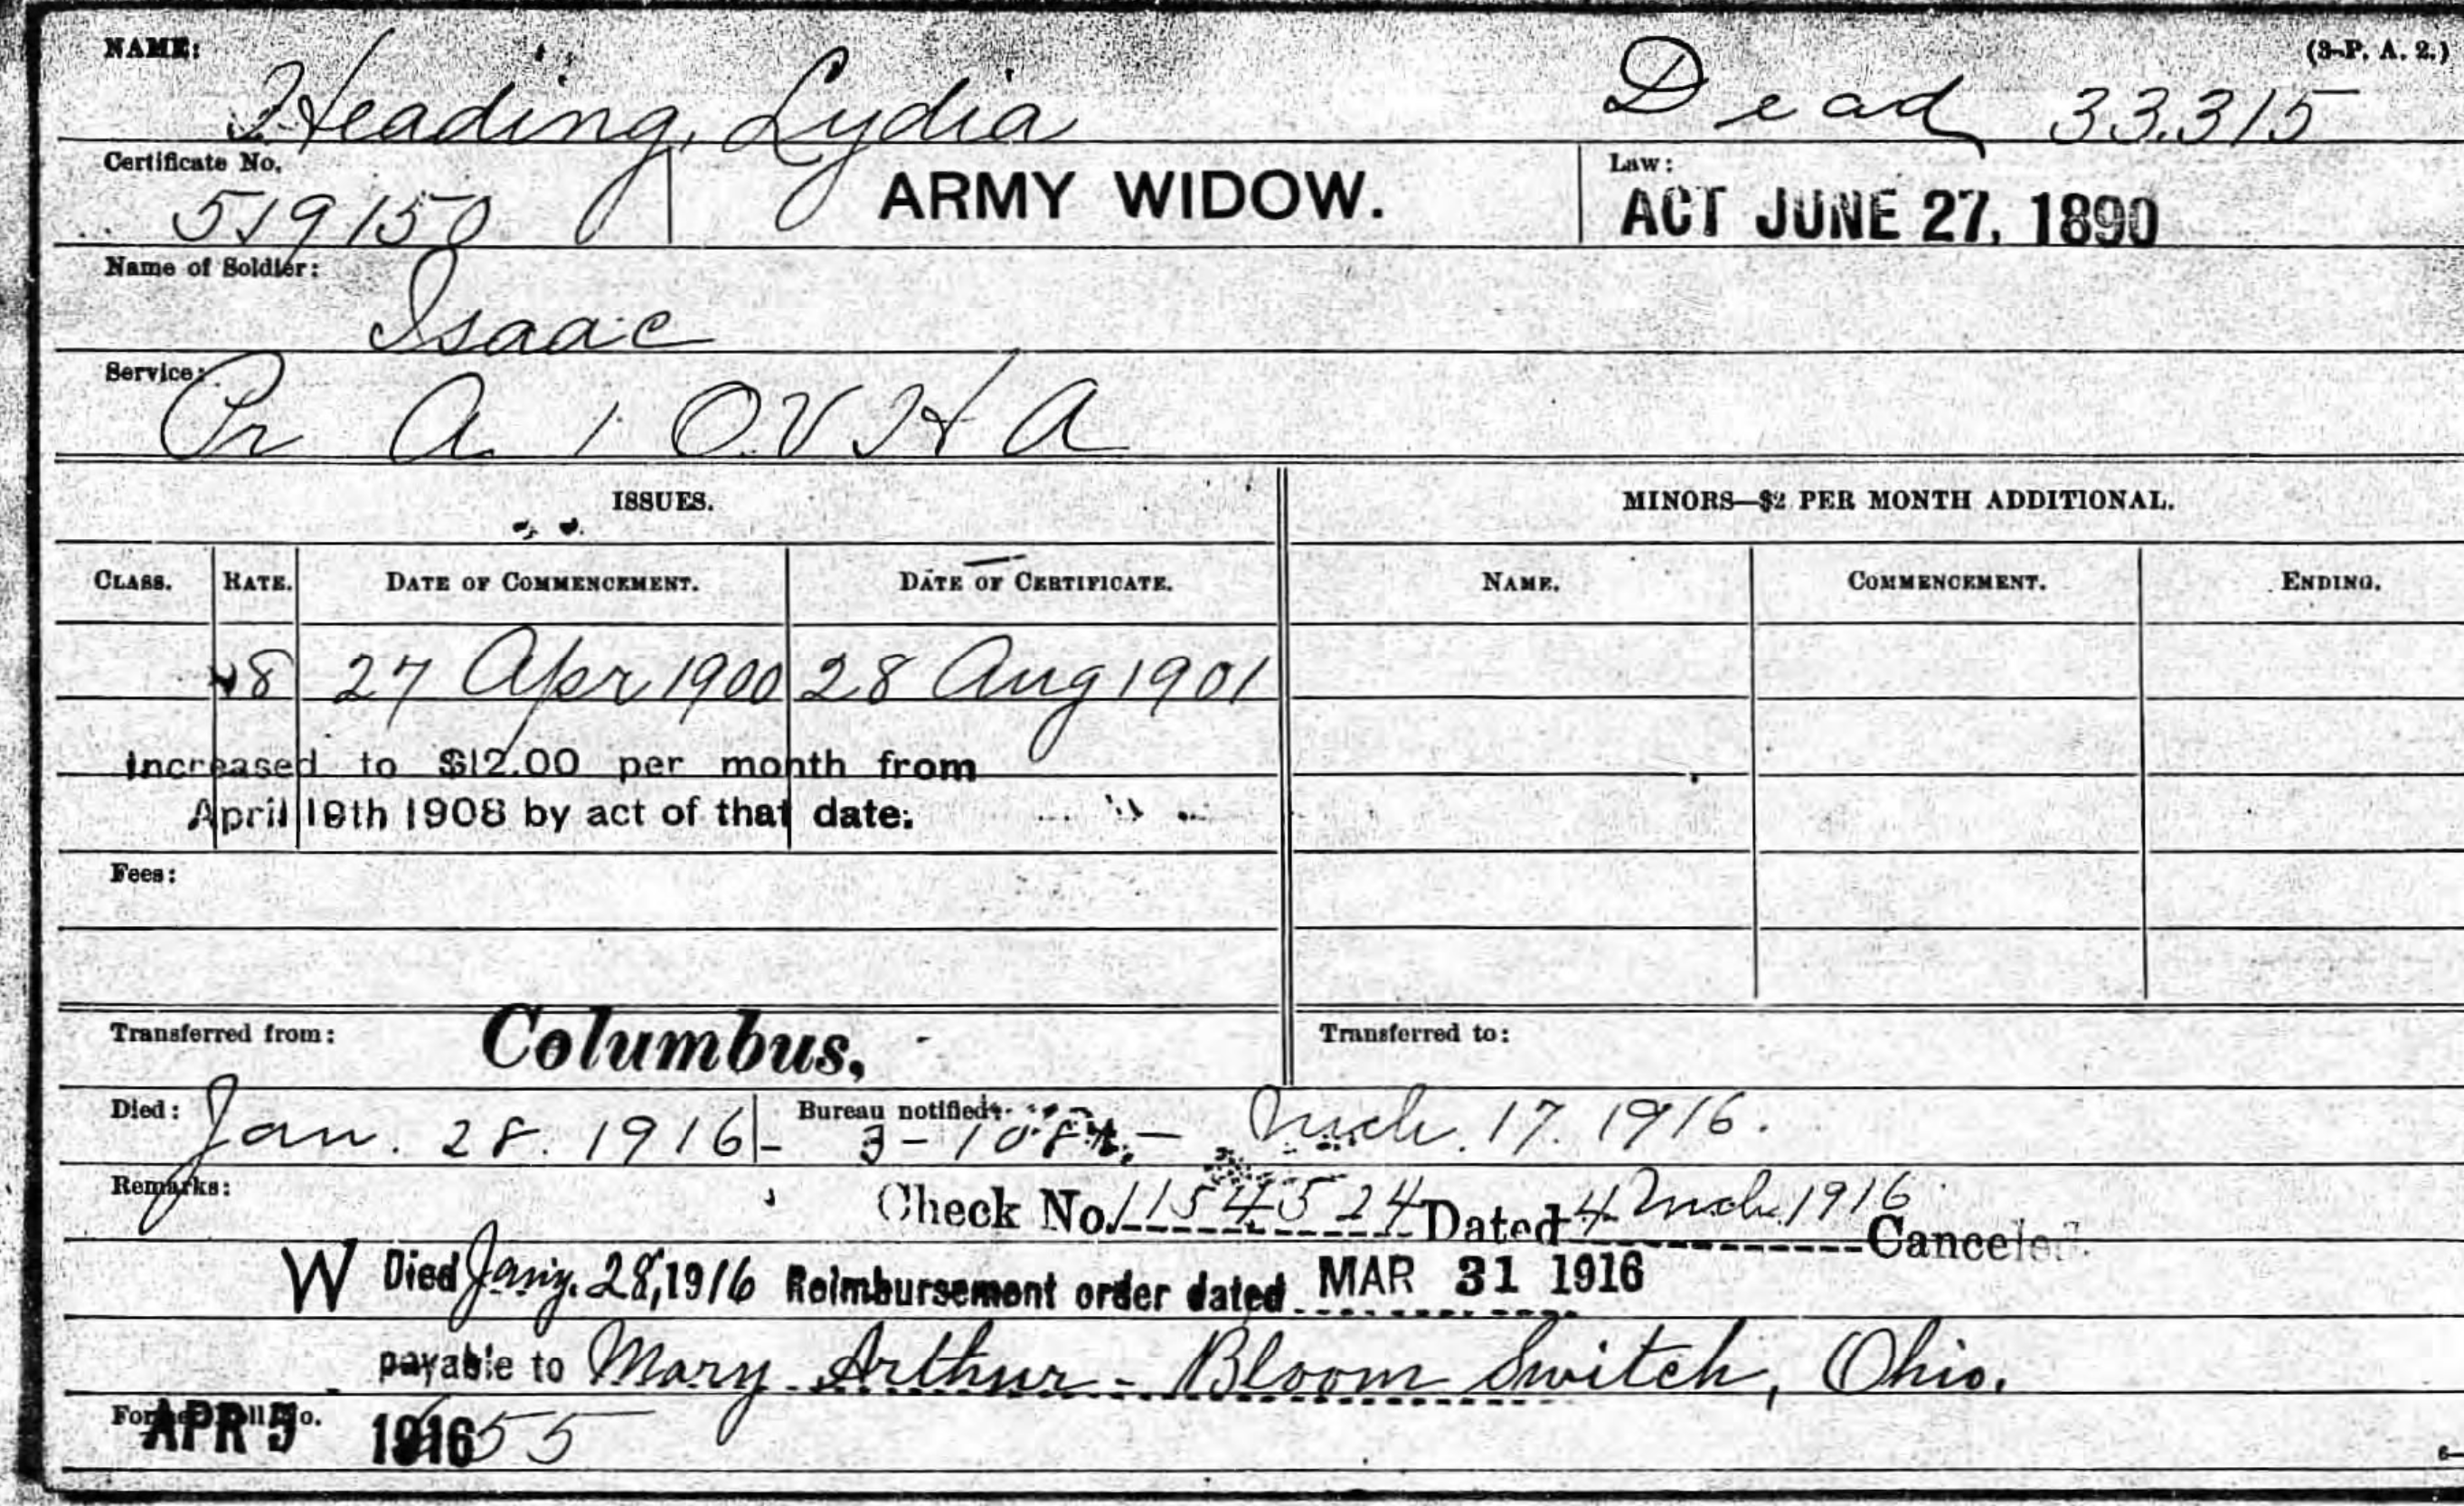 NAME: (3-P. A. 2.)
Heading, Lydia Dead 33,315
Certificate No. 519150 ARMY WIDOW. Law: ACT JUNE 27, 1890
Name of Soldier:
Isaac
Service:
Pr A. 1 O.V H A
ISSUES. MINORS—$2 PER MONTH ADDITIONAL.
CLASS. RATE. DATE OF COMMENCEMENT. DATE OF CERTIFICATE. NAME. COMMENCEMENT. ENDING.
8 27 Apr 1900 28 Aug 1901
Increased to $12.00 per month from
April 19th 1908 by act of that date.
Fees:
Transferred from: Columbus, Transferred to:
Died: Jan. 28. 1916 Bureau notified: Mch. 17. 1916.
Remarks:
Check No. 1154524 Dated 4 Mch 1916 Canceled
W Died Jany. 28, 1916 Reimbursement order dated MAR 31 1916
payable to Mary Arthur - Bloom Switch, Ohio.
Former Roll No. 55
APR 5 1916